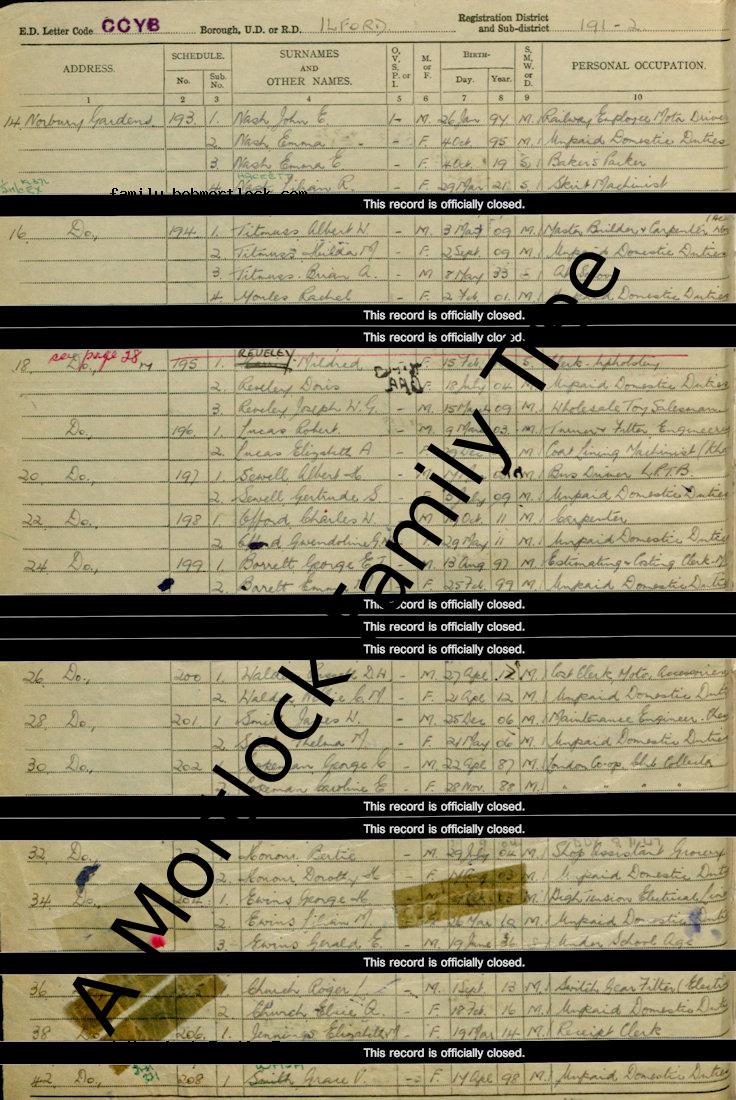 E.D. Letter Code CCYB Borough, U.D. or R.D. ILFORD Registration District and Sub-district 191-2
ADDRESS. SCHEDULE. No. Sub. No. SURNAMES AND OTHER NAMES. O, V, S, P. or I. M. or F. BIRTH- Day. Year. S, M, W, or D. PERSONAL OCCUPATION.
1 2 3 4 5 6 7 8 9 10
14 Norbury Gardens 193 1. Nash John E - M. 26 Jan 94 M. Railway Employee Motor Driver
2. Nash Emma - F. 4 Oct. 95 M. Unpaid Domestic Duties
3. Nash Emma E - F. 4 Oct. 19 S. Bakers Packer
4. Lilian R. - F. 29 Mar 21 S. Skirt Machinist
family.bobmortlock.com
This record is officially closed.
16 Do., 194. 1. Titmuss Albert W. - M. 3 09 M. Master Builder & Carpenter
2. Titmuss Hilda M - F. 2 Sept. 09 M. Unpaid Domestic Duties
3. Titmuss Brian A. - M. 8 May 33 -
4. Moules Rachel - F. 2 Feb. 01 M. Unpaid Domestic Duties
This record is officially closed.
This record is officially closed.
see page 28
18 Do., 195 1. REVELEY Mildred - F. 15 Feb S. Clerk. Upholstery
2. Reveley Doris F. 18 July 04 M. Unpaid Domestic Duties
3. Reveley Joseph W.G. - M. 15 09 M. Wholesale Toy Salesman
Do 196. 1. Lucas Robert. - M. 9 Mar 03. M. Turner & Fitter Engineering
2. Lucas Elizabeth A Dec M. Coat Lining Machinist
20 Do., 197 1. Sewell Albert M. Bus Driver L.P.T.B.
2. Sewell Gertrude S. July 09 M. Unpaid Domestic Duties
22 Do., 198 1 Offord Charles W. M Oct. 11 M. Carpenter
2. Offord Gwendoline 29 May 11 M. Unpaid Domestic Duties
24 Do., 199 1. Barrett George E. M. 13 Aug 97 M. Estimating & Costing Clerk
2. Barrett F. 25 Feb. 99 M. Unpaid Domestic Duties
This record is officially closed.
This record is officially closed.
This record is officially closed.
26 Do. 200 1. D.H - M. 27 Apl 12 M. Cost Clerk, Motor Accessories
2. M - F. 21 Apl 12 M. Unpaid Domestic
28 Do., 201. 1 James W. - M. 25 Dec 06 M. Maintenance Engineer
2. Thelma M - F. 21 May 06 M. Unpaid Domestic Duties
30 Do., 202 George C - M. 22 Apl 87 M. London Co-op. Club Collector
Caroline E - F. 28 Nov. 88 M. " " "
This record is officially closed.
This record is officially closed.
32 Do., Honour Bertie - M. 29 July 04 M. Shop Assistant Grocery
2. Honour Dorothy F. 03 M. Unpaid Domestic
34 Do., 204. 1. Ewins George M. High Tension Electrical
2. Ewins Lilian M. F. Mar 10 M. Unpaid Domestic
3. Ewins Gerald E. - M. 19 June 36 Under School Age
This record is officially closed.
36 Church Roger L - M. 1 Sept. 13 M. Switch Gear Fitter
2. Church Elsie - F. 18 Feb. 16 M. Unpaid Domestic
38 206. 1. Jennings Elizabeth M - F. 19 Mar 14 M. Receipt Clerk
This record is officially closed.
42 Do., 208 1 Smith Grace - F. 17 Apl 98 M. Unpaid Domestic Duties
A Mortlock Family Tree